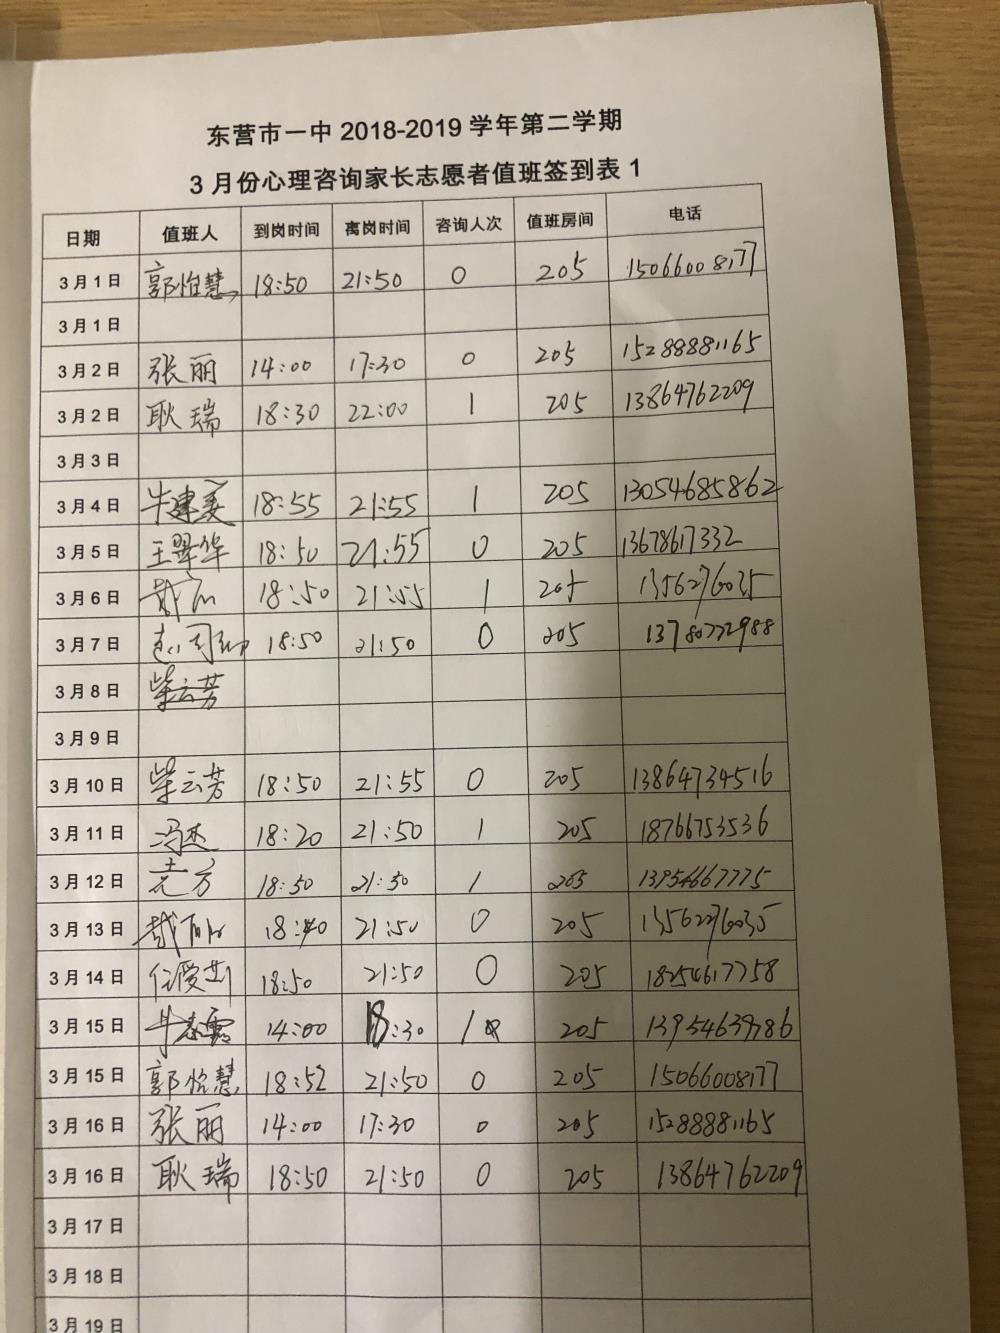 东营市一中 2018-2019 学年第二学期
3 月份心理咨询家长志愿者值班签到表 1
日期 值班人 到岗时间 离岗时间 咨询人次 值班房间 电话
3 月 1 日 郭怡慧 18:50 21:50 0 205 15066008177
3 月 1 日
3 月 2 日 张丽 14:00 17:30 0 205 15288881165
3 月 2 日 耿瑞 18:30 22:00 1 205 13864762209
3 月 3 日
3 月 4 日 牛建美 18:55 21:55 1 205 13054685862
3 月 5 日 王翠华 18:50 21:55 0 205 13678617332
3 月 6 日 18:50 21:55 1 205 13562276035
3 月 7 日 18:50 21:50 0 205 13780772988
3 月 8 日 柴云芳
3 月 9 日
3 月 10 日 柴云芳 18:50 21:55 0 205 13864734516
3 月 11 日 冯杰 18:20 21:50 1 205 18766753536
3 月 12 日 18:50 21:50 1 205 13954667775
3 月 13 日 18:40 21:50 0 205 13562276035
3 月 14 日 任爱菊 18:50 21:50 0 205 18254617758
3 月 15 日 14:00 18:30 1 205 13954639786
3 月 15 日 郭怡慧 18:52 21:50 0 205 15066008177
3 月 16 日 张丽 14:00 17:30 0 205 15288881165
3 月 16 日 耿瑞 18:50 21:50 0 205 13864762209
3 月 17 日
3 月 18 日
3 月 19 日